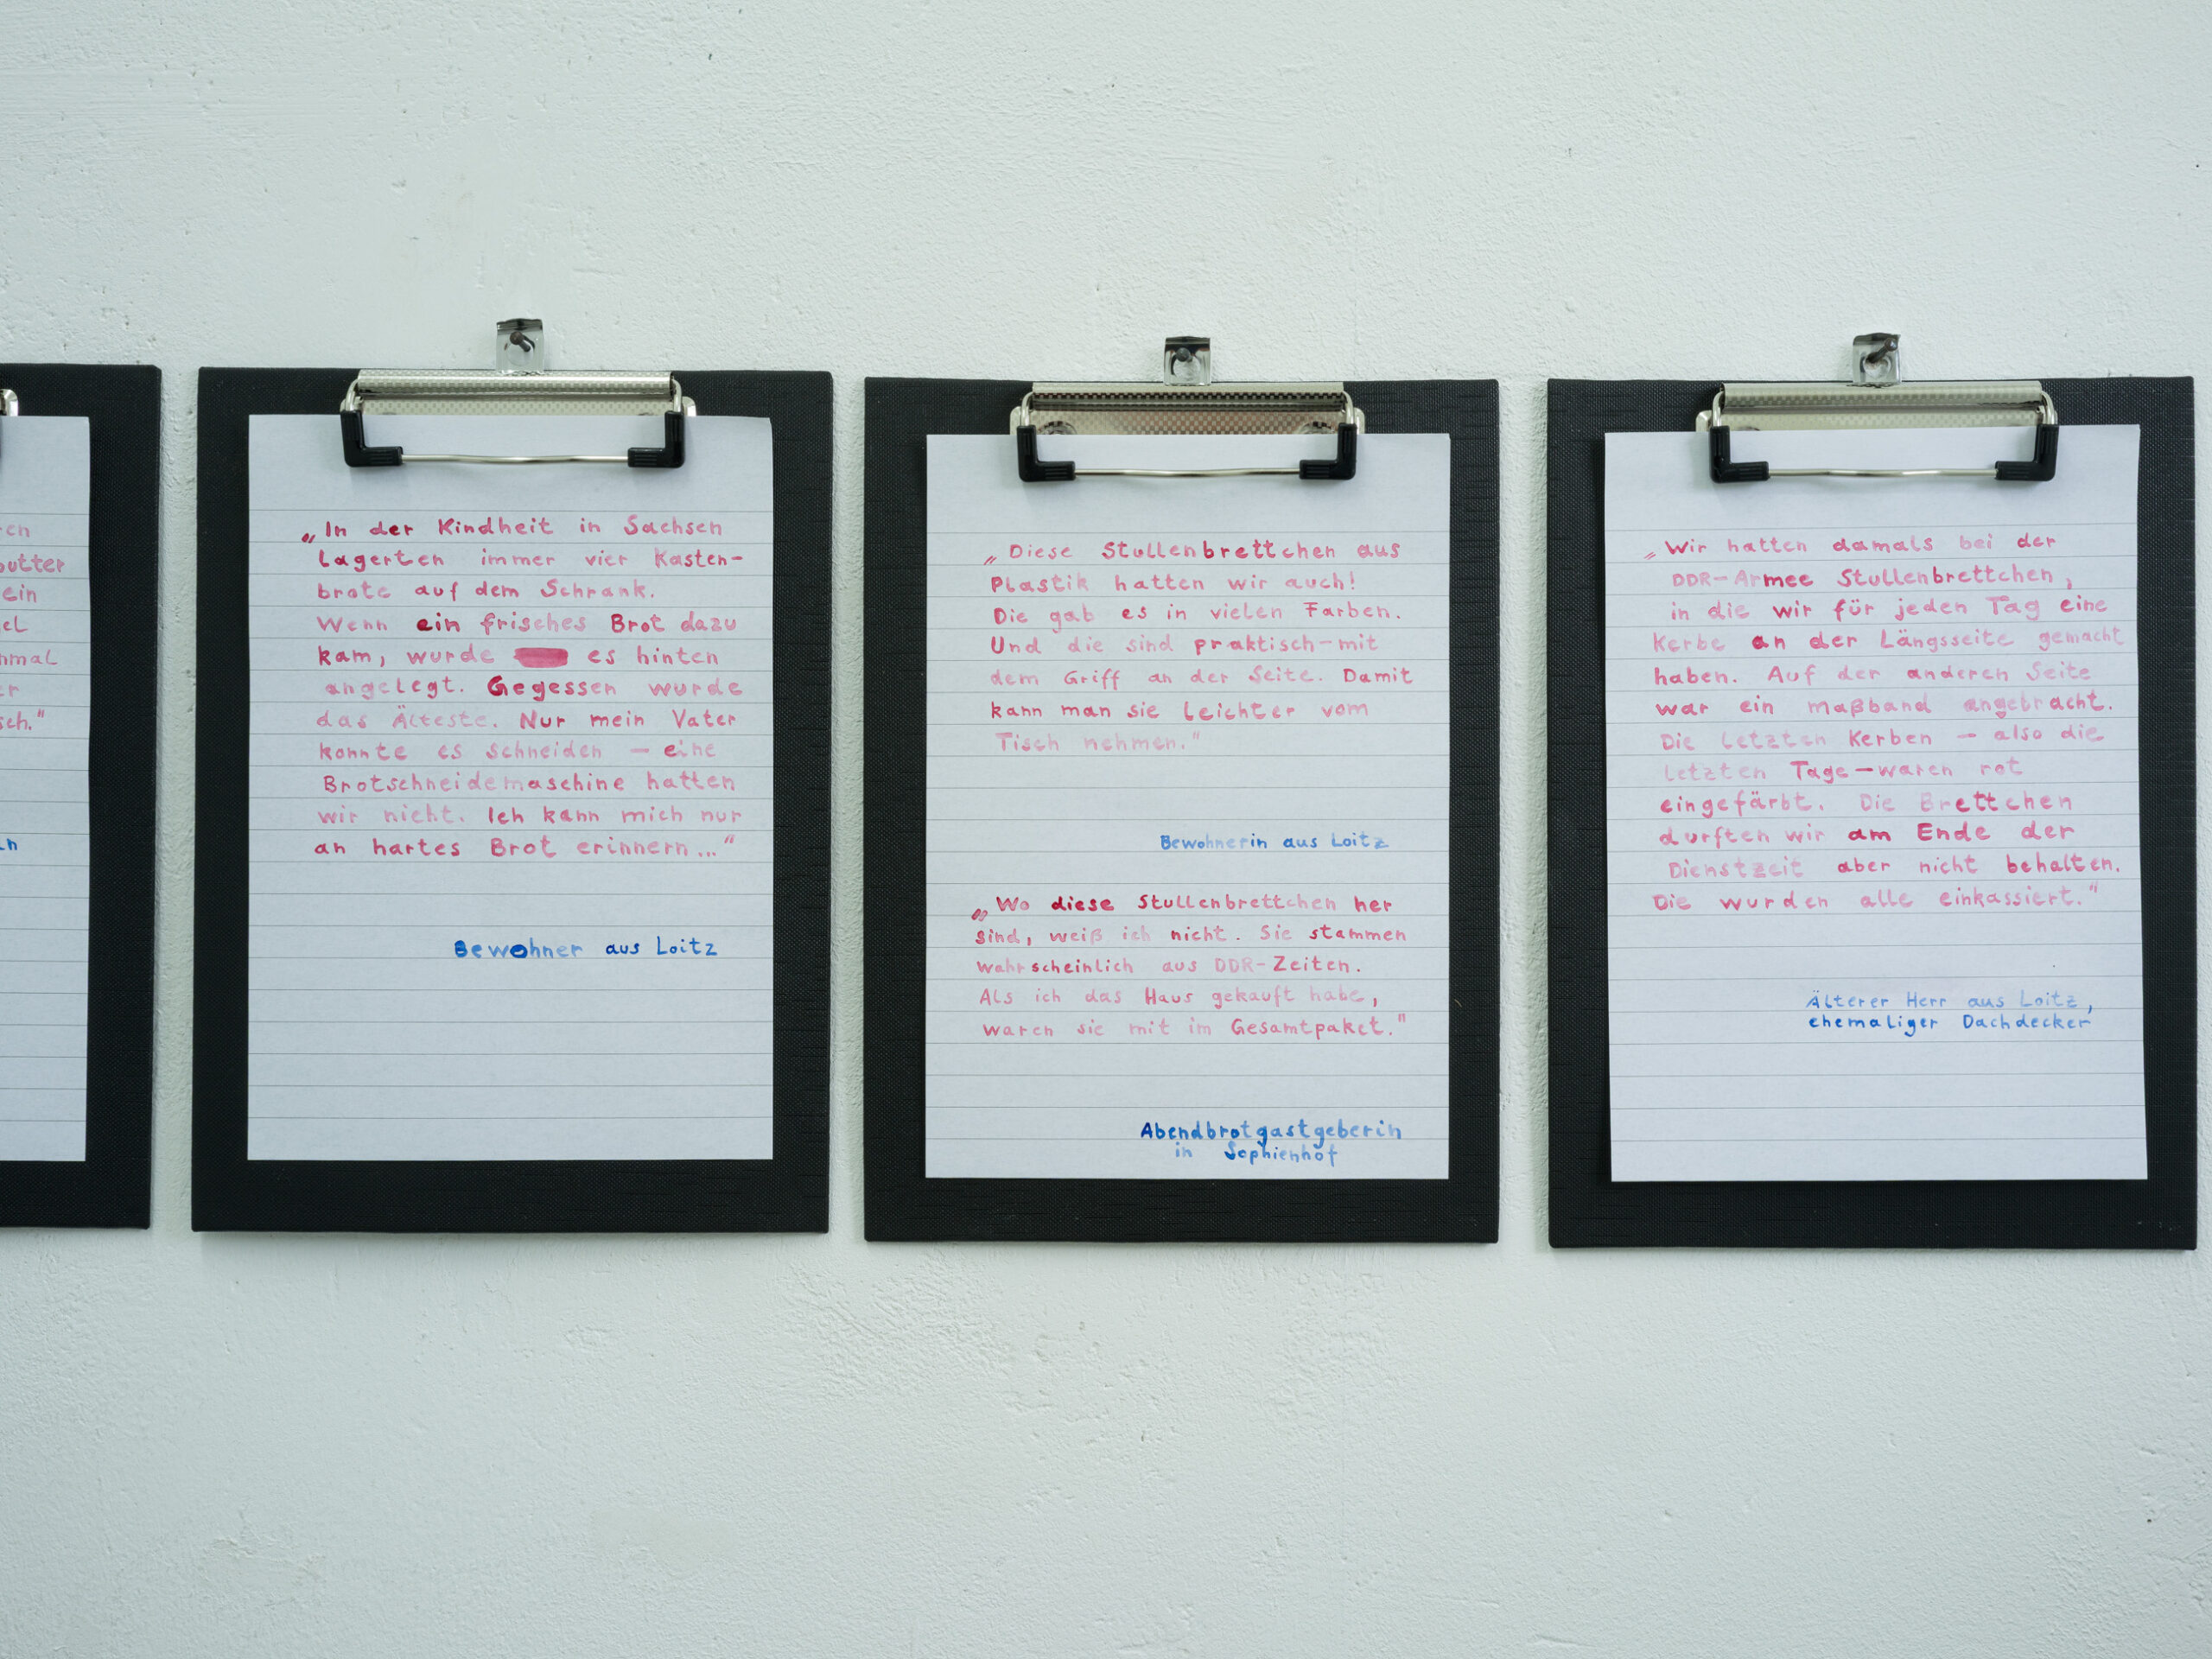 en
butter
ein
el
nmal
er
sch."
in
„In der Kindheit in Sachsen
lagerten immer vier Kasten-
brote auf dem Schrank.
Wenn ein frisches Brot dazu
kam, wurde es hinten
angelegt. Gegessen wurde
das Älteste. Nur mein Vater
konnte es schneiden – eine
Brotschneidemaschine hatten
wir nicht. Ich kann mich nur
an hartes Brot erinnern..."
Bewohner aus Loitz
„Diese Stullenbrettchen aus
Plastik hatten wir auch!
Die gab es in vielen Farben.
Und die sind praktisch – mit
dem Griff an der Seite. Damit
kann man sie leichter vom
Tisch nehmen."
Bewohnerin aus Loitz
„Wo diese Stullenbrettchen her
sind, weiß ich nicht. Sie stammen
wahrscheinlich aus DDR-Zeiten.
Als ich das Haus gekauft habe,
waren sie mit im Gesamtpaket."
Abendbrotgastgeberin
in Sophienhof
„Wir hatten damals bei der
DDR-Armee Stullenbrettchen,
in die wir für jeden Tag eine
Kerbe an der Längsseite gemacht
haben. Auf der anderen Seite
war ein Maßband angebracht.
Die letzten Kerben – also die
letzten Tage – waren rot
eingefärbt. Die Brettchen
durften wir am Ende der
Dienstzeit aber nicht behalten.
Die wurden alle einkassiert."
Älterer Herr aus Loitz,
ehemaliger Dachdecker